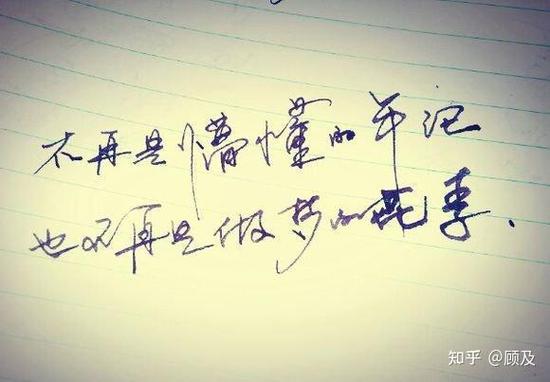 不再是懵懂的年记
也不再是做梦的花季.
知乎 @顾及